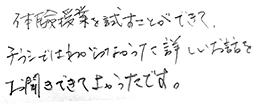 体験授業を試すことができて、
チラシではわからなかった詳しいお話を
お聞きできてよかったです。